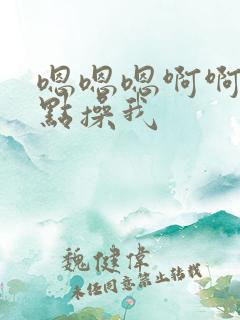 嗯嗯嗯啊啊
點操我
魏健偉
未经同意禁止转载